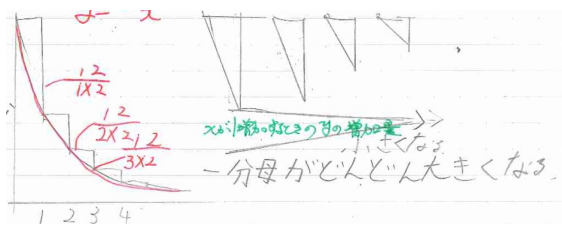 12
1×2
12
2×2
12
3×2
xが1増加するときのyの増加量
小さくなる
分母がどんどん大きくなる
1 2 3 4